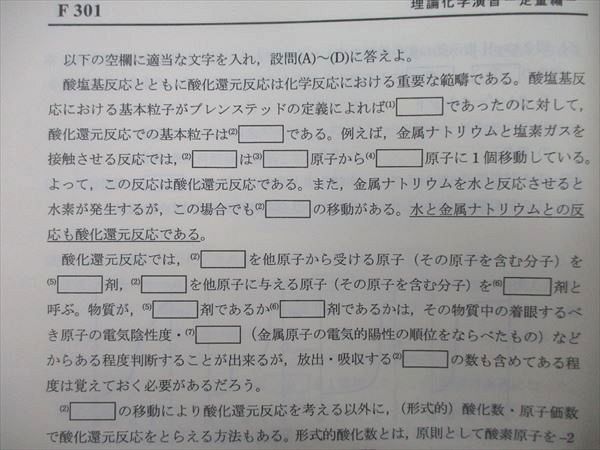 F 301
理論化学演習－定量編－
以下の空欄に適当な文字を入れ，設問(A)～(D)に答えよ。
酸塩基反応とともに酸化還元反応は化学反応における重要な範疇である。酸塩基反
応における基本粒子がブレンステッドの定義によれば(1)□であったのに対して，
酸化還元反応での基本粒子は(2)□である。例えば，金属ナトリウムと塩素ガスを
接触させる反応では，(2)□は(3)□原子から(4)□原子に１個移動している。
よって，この反応は酸化還元反応である。また，金属ナトリウムを水と反応させると
水素が発生するが，この場合でも(2)□の移動がある。水と金属ナトリウムとの反
応も酸化還元反応である。
酸化還元反応では，(2)□を他原子から受ける原子（その原子を含む分子）を
(5)□剤，(2)□を他原子に与える原子（その原子を含む分子）を(6)□剤と
呼ぶ。物質が，(5)□剤であるか(6)□剤であるかは，その物質中の着眼するべ
き原子の電気陰性度・(7)□（金属原子の電気的陽性の順位をならべたもの）など
からある程度判断することが出来るが，放出・吸収する(2)□の数も含めてある程
度は覚えておく必要があるだろう。
(2)□の移動により酸化還元反応を考える以外に，（形式的）酸化数・原子価数
で酸化還元反応をとらえる方法もある。形式的酸化数とは，原則として酸素原子を−2